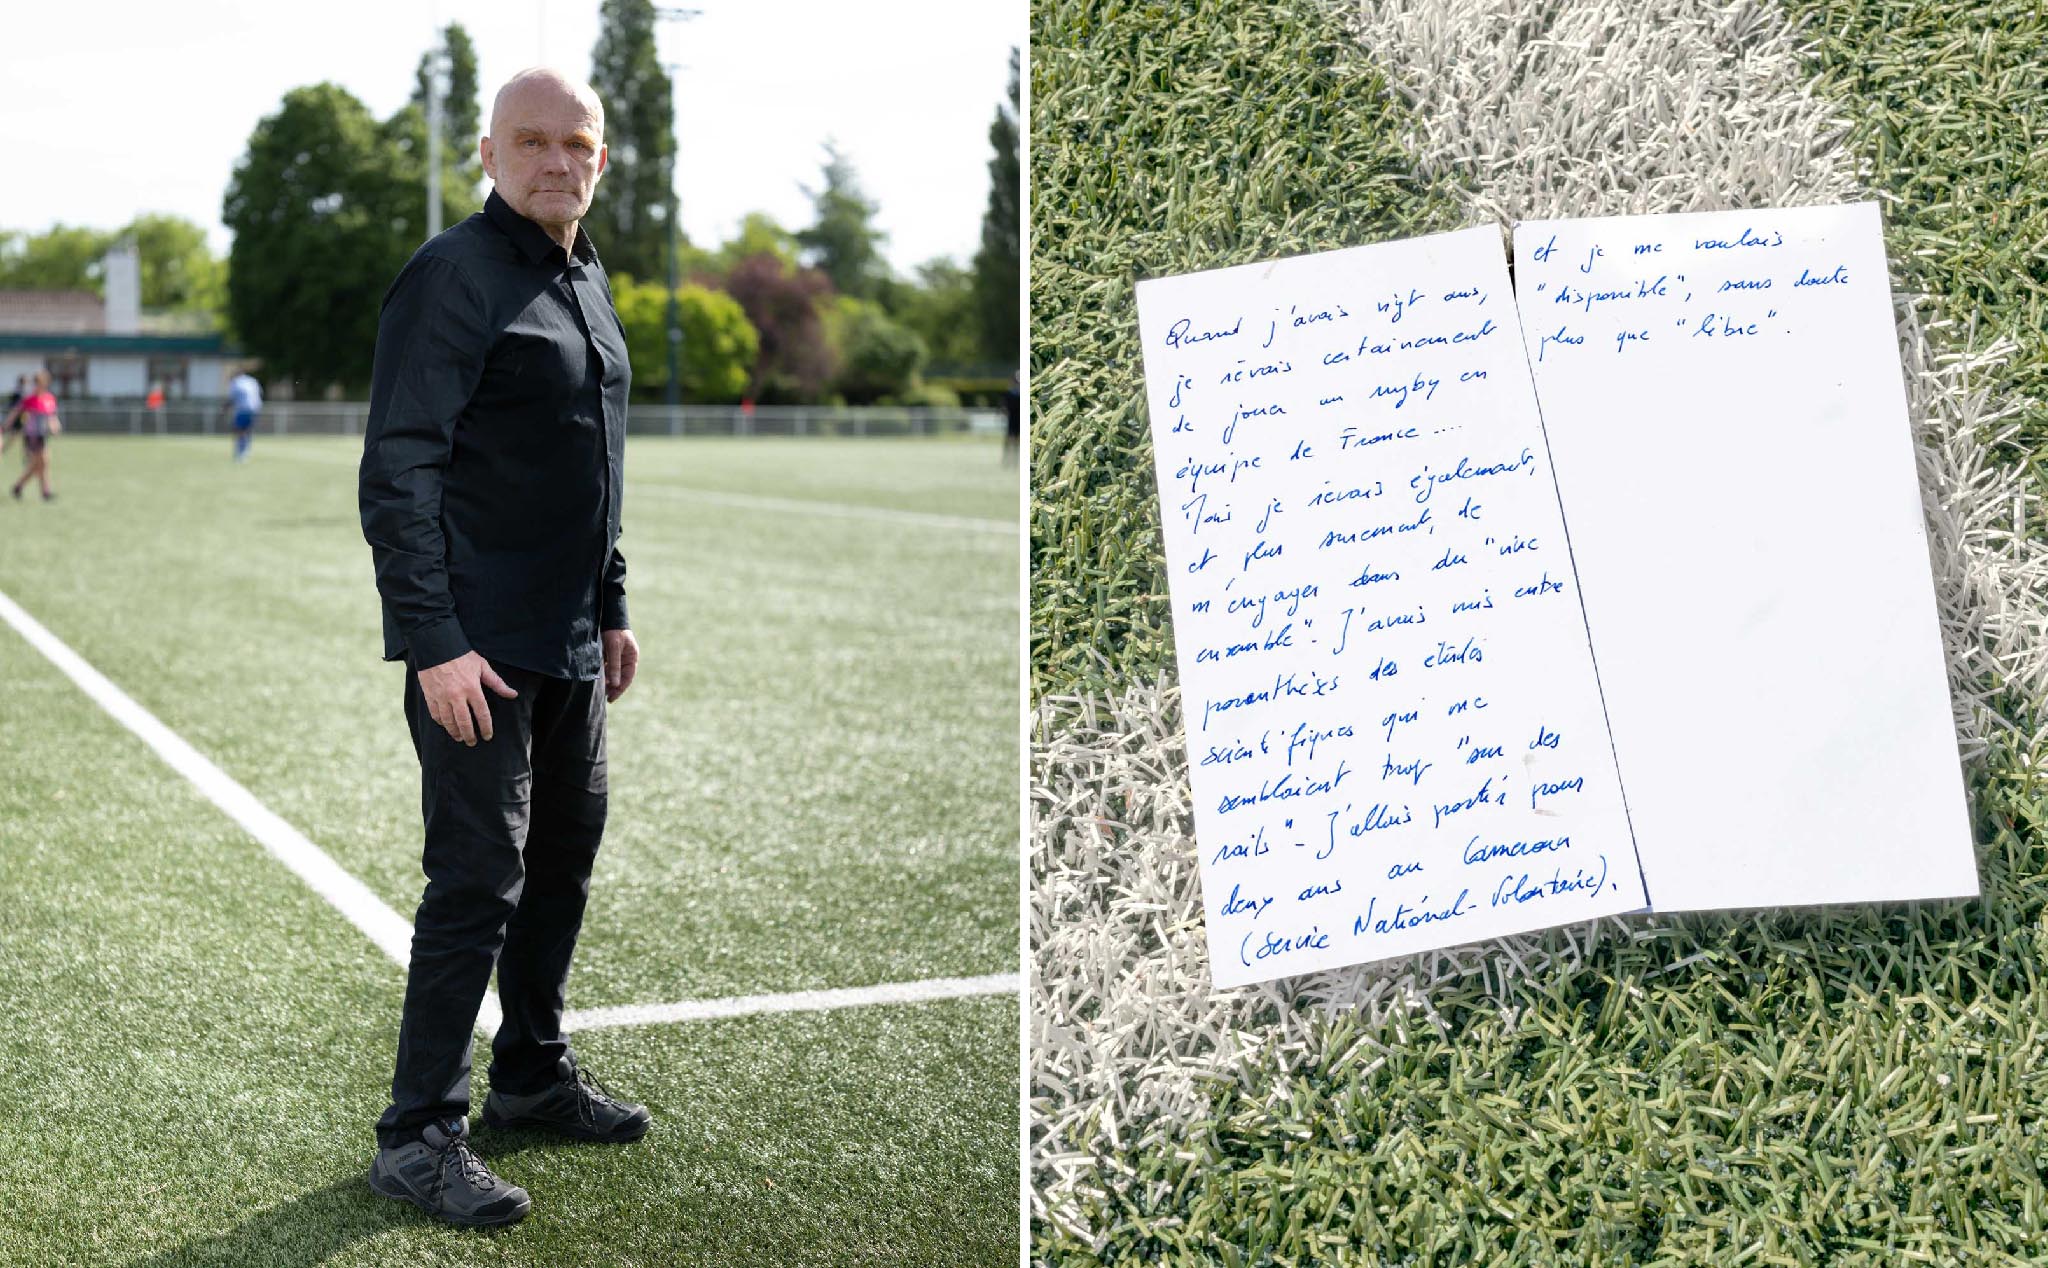 Quand j'avais vingt ans,
je rêvais certainement
de jouer au rugby en
équipe de France ....
Mais je rêvais également,
et plus surement, de
m'engager dans du "vivre
ensemble". J'avais mis entre
paranthèses des études
scientifiques qui me
semblaient trop "sur des
rails" - J'allais partir pour
deux ans au Cameroun
(Service National-Volontaire),
et je me voulais ...
"disponible", sans doute
plus que "libre".